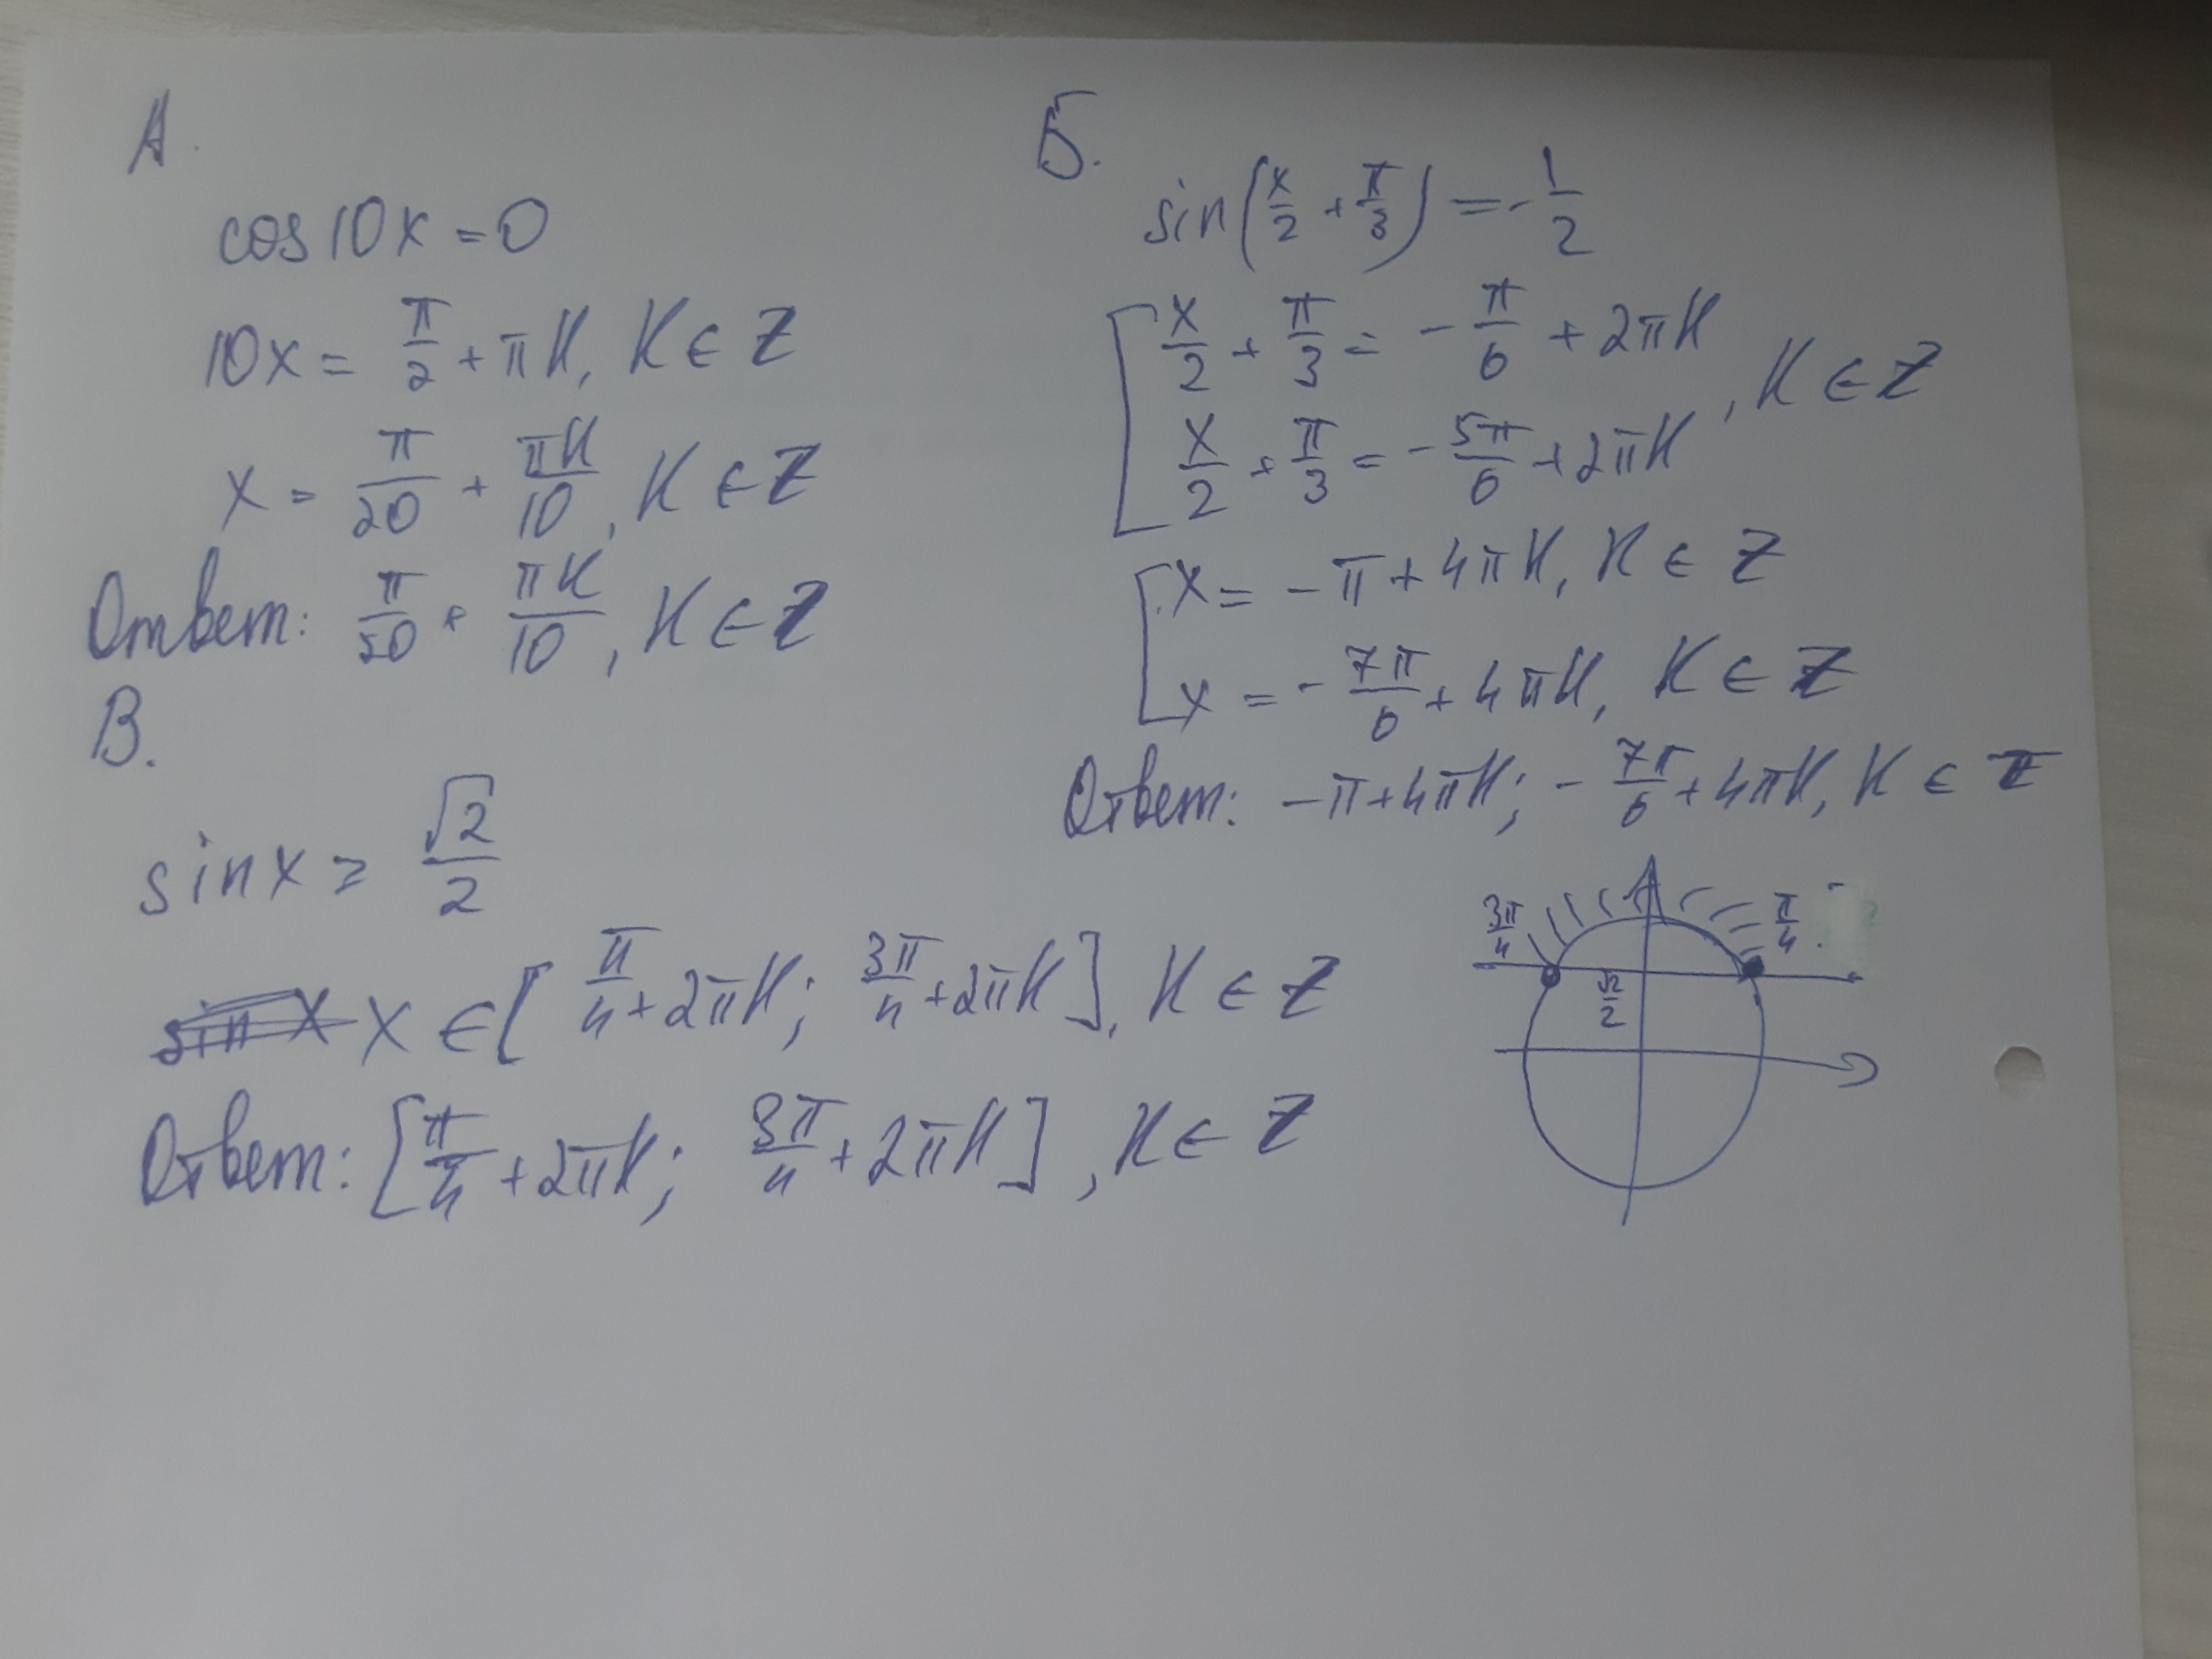 А.
cos10x=0
10x = π/2 + πК, К ∈ Z
x = π/20 + πК/10, К ∈ Z
Ответ: π/20 + πК/10, К ∈ Z
Б.
sin(x/2 + π/3) = -1/2
[ x/2 + π/3 = - π/6 + 2πК
x/2 + π/3 = - 5π/6 + 2πК , К ∈ Z
[ x = - π + 4πК, К ∈ Z
x = - 7π/6 + 4πК, К ∈ Z
Ответ: -π+4πК; - 7π/6 + 4πК, К ∈ Z
В.
sinx ≥ √2/2
sin x x ∈ [ π/4 + 2πК; 3π/4 + 2πК ], К ∈ Z
Ответ: [ π/4 + 2πК; 3π/4 + 2πК ], К ∈ Z
3π/4
π/4
√2/2